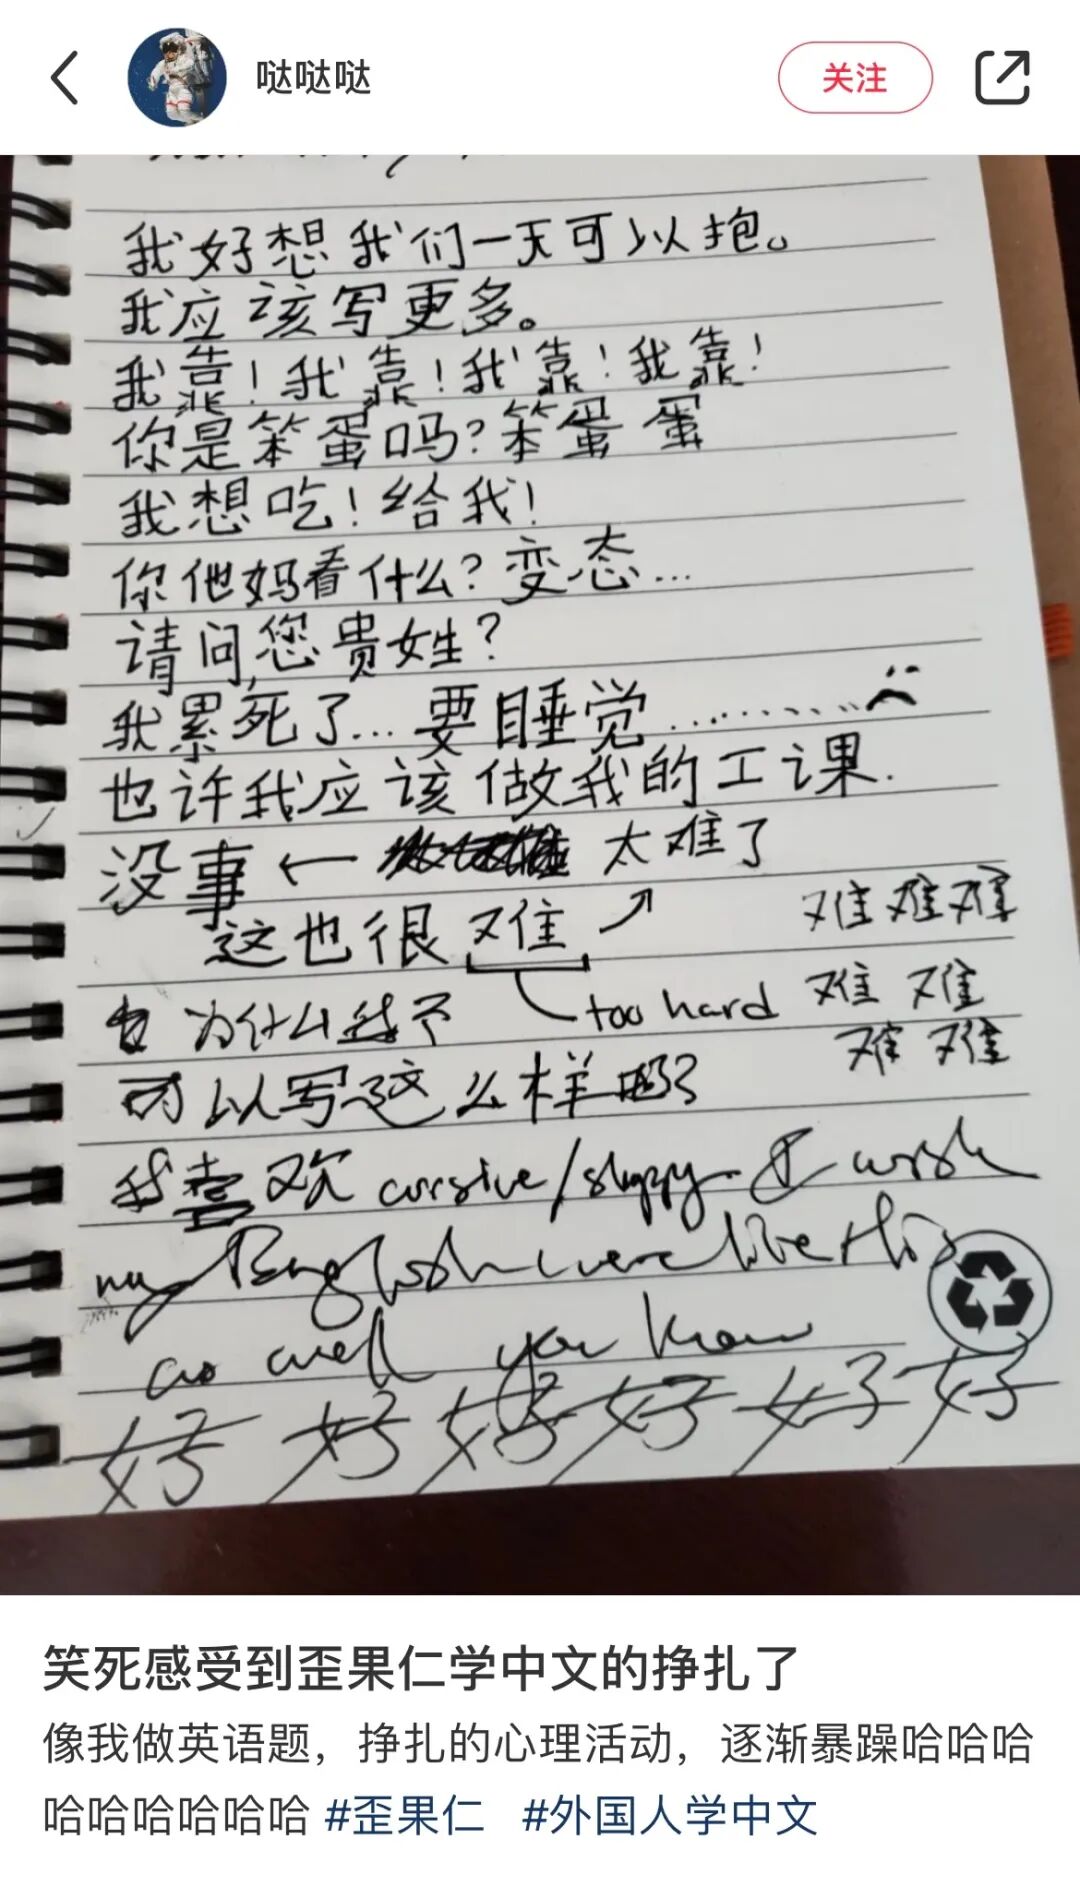 哒哒哒
关注
我好想我们一天可以抱。
我应该写更多。
我靠！我靠！我靠！我靠！
你是笨蛋吗？笨蛋蛋
我想吃！给我！
你他妈看什么？变态...
请问,您贵姓？
我累死了...要睡觉............
也许我应该做我的工课.
没事 ← 太难了
这也很难
难难难
为什么我不 too hard 难难
可以写这么样吗？ 难难
我喜欢 cursive/sloppy I wish
my English were like this
as well you know
好好好好好好
笑死感受到歪果仁学中文的挣扎了
像我做英语题，挣扎的心理活动，逐渐暴躁哈哈哈
哈哈哈哈哈哈 #歪果仁 #外国人学中文